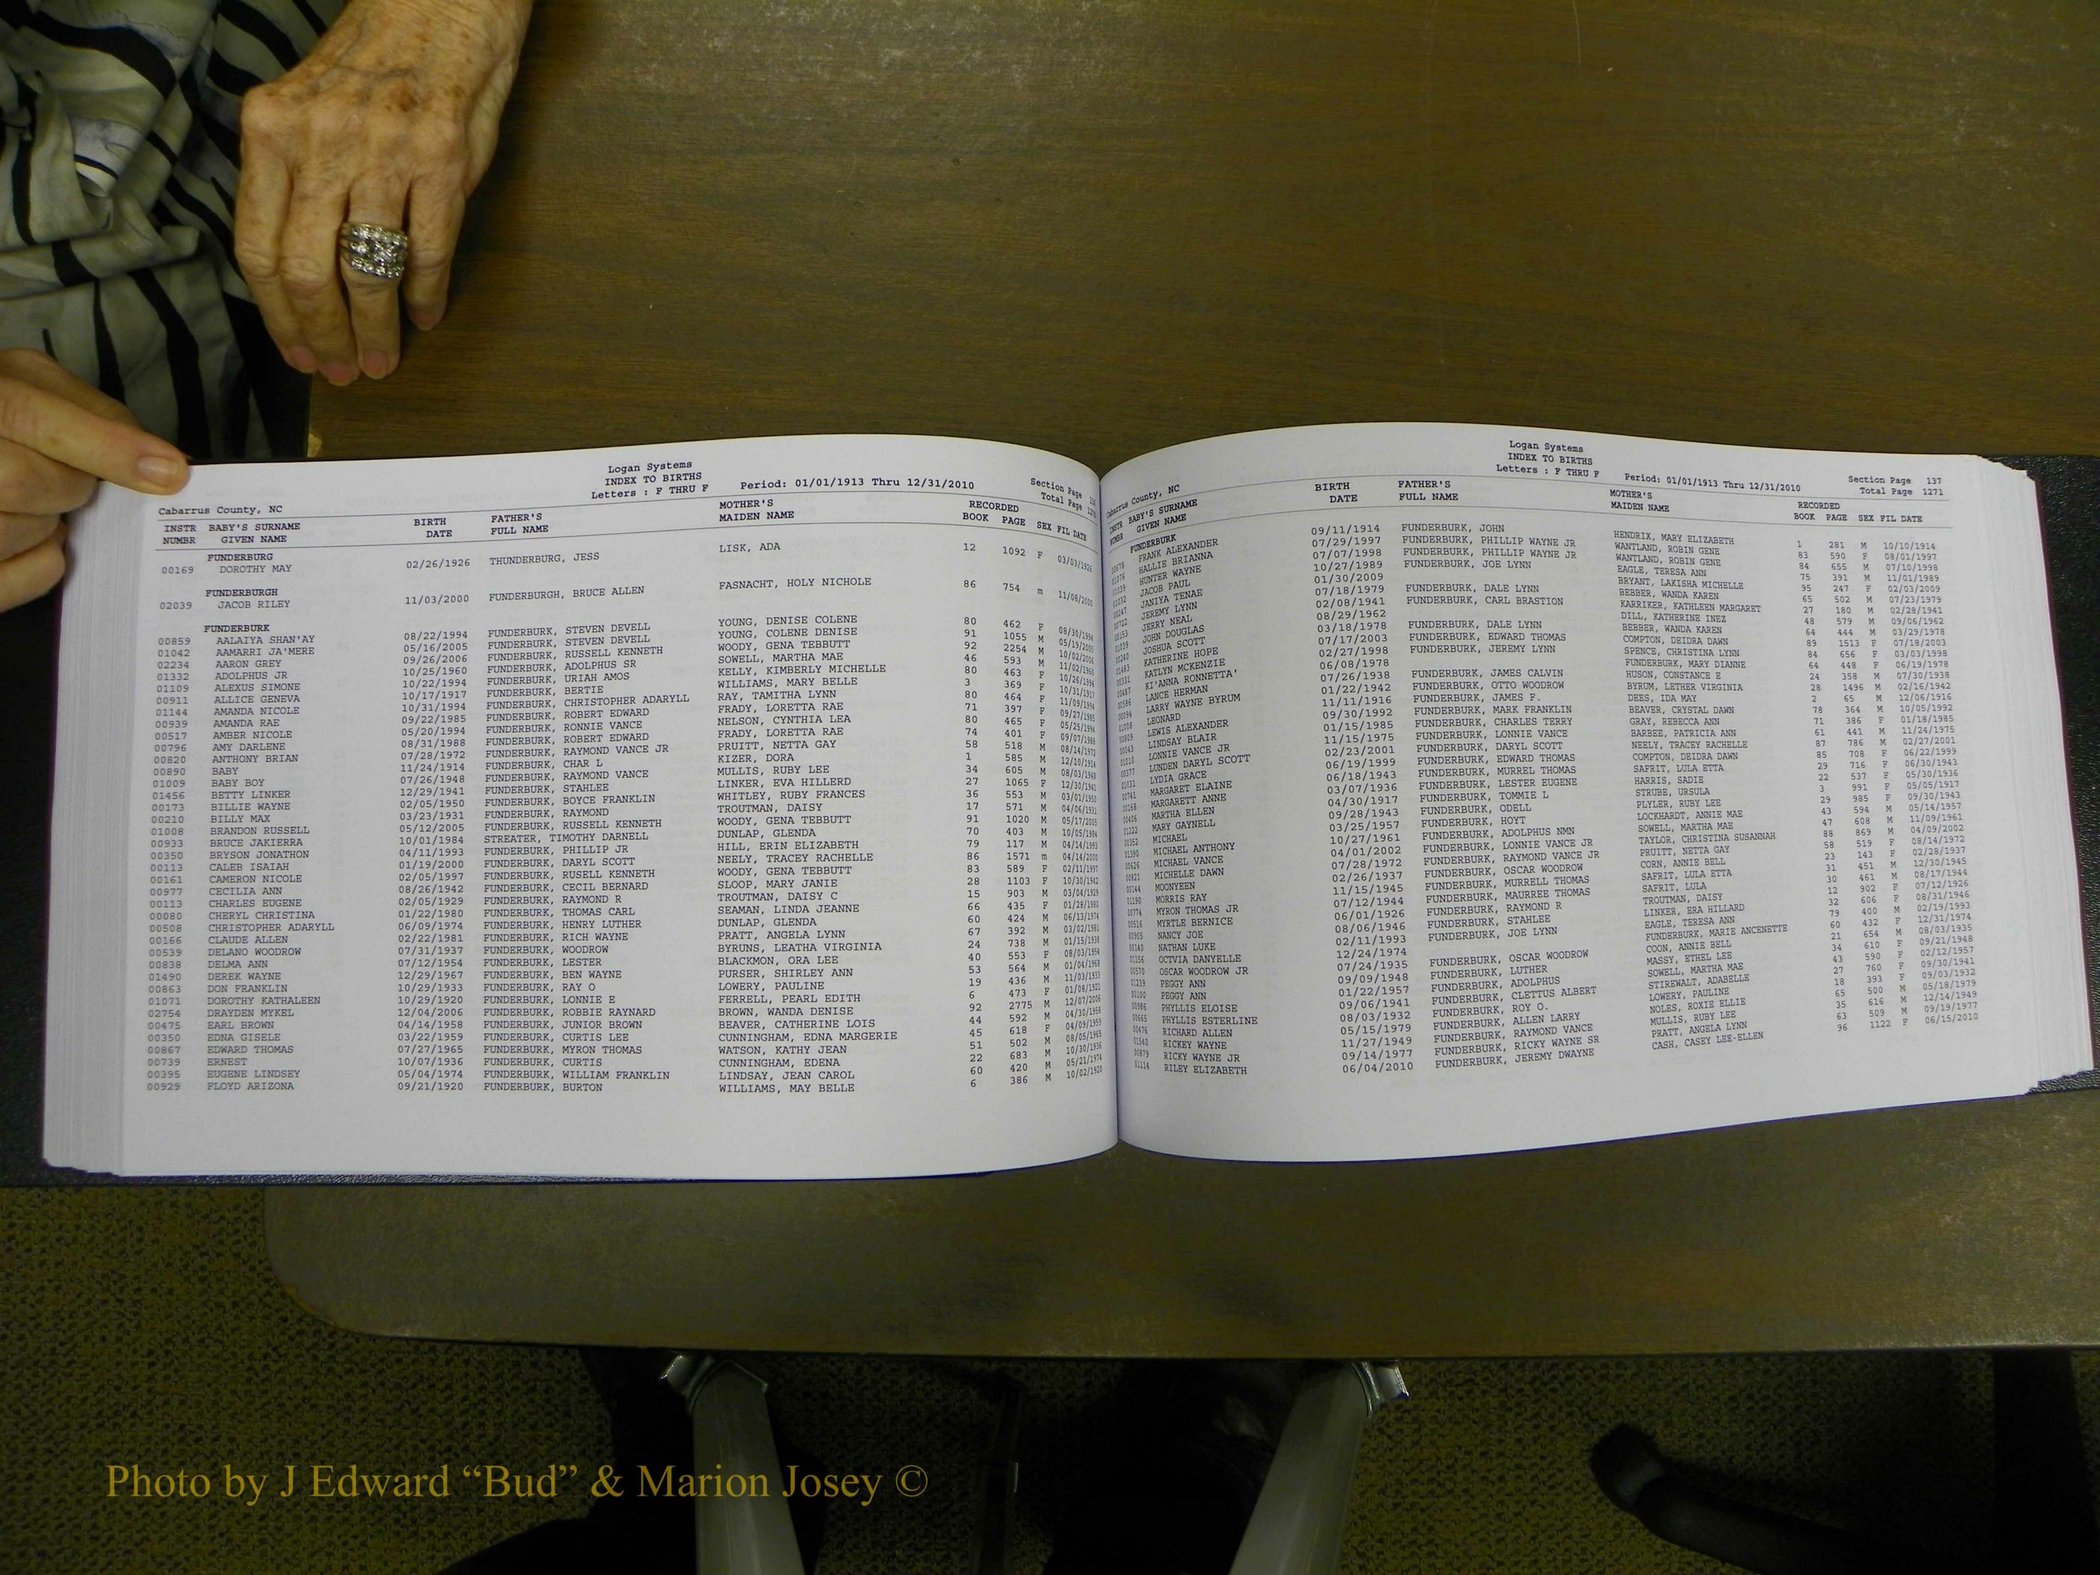 Logan Systems
INDEX TO BIRTHS
Letters : F THRU F
Period: 01/01/1913 Thru 12/31/2010
Section Page
Total Page
Cabarrus County, NC
INSTR NUMBR BABY'S SURNAME GIVEN NAME BIRTH DATE FATHER'S FULL NAME MOTHER'S MAIDEN NAME RECORDED BOOK PAGE SEX FIL DATE
FUNDERBURG
00169 DOROTHY MAY 02/26/1926 THUNDERBURG, JESS LISK, ADA 12 1092 F 03/03/1926
FUNDERBURGH
02039 JACOB RILEY 11/03/2000 FUNDERBURGH, BRUCE ALLEN FASNACHT, HOLY NICHOLE 86 754 m 11/08/2000
FUNDERBURK
00859 AALAIYA SHAN'AY 08/22/1994 FUNDERBURK, STEVEN DEVELL YOUNG, DENISE COLENE 80 462 F 08/30/1994
01042 AAMARRI JA'MERE 05/16/2005 FUNDERBURK, STEVEN DEVELL YOUNG, COLENE DENISE 91 1055 M 05/19/2005
02234 AARON GREY 09/26/2006 FUNDERBURK, RUSSELL KENNETH WOODY, GENA TEBBUTT 92 2254 M 10/02/2006
01332 ADOLPHUS JR 10/25/1960 FUNDERBURK, ADOLPHUS SR SOWELL, MARTHA MAE 46 593 M 11/02/1960
01109 ALEXUS SIMONE 10/22/1994 FUNDERBURK, URIAH AMOS KELLY, KIMBERLY MICHELLE 80 463 F 10/26/1994
00911 ALLICE GENEVA 10/17/1917 FUNDERBURK, BERTIE WILLIAMS, MARY BELLE 3 369 F 10/31/1917
01144 AMANDA NICOLE 10/31/1994 FUNDERBURK, CHRISTOPHER ADARYLL RAY, TAMITHA LYNN 80 464 F 11/09/1994
00939 AMANDA RAE 09/22/1985 FUNDERBURK, ROBERT EDWARD FRADY, LORETTA RAE 71 397 F 09/27/1985
00517 AMBER NICOLE 05/20/1994 FUNDERBURK, RONNIE VANCE NELSON, CYNTHIA LEA 80 465 F 05/25/1994
00796 AMY DARLENE 08/31/1988 FUNDERBURK, ROBERT EDWARD FRADY, LORETTA RAE 74 401 F 09/07/1988
00820 ANTHONY BRIAN 07/28/1972 FUNDERBURK, RAYMOND VANCE JR PRUITT, NETTA GAY 58 518 M 08/14/1972
00890 BABY 11/24/1914 FUNDERBURK, CHAR L KIZER, DORA 1 585 M 12/10/1914
01009 BABY BOY 07/26/1948 FUNDERBURK, RAYMOND VANCE MULLIS, RUBY LEE 34 605 M 08/03/1948
01456 BETTY LINKER 12/29/1941 FUNDERBURK, STAHLEE LINKER, EVA HILLERD 27 1065 F 12/30/1941
00173 BILLIE WAYNE 02/05/1950 FUNDERBURK, BOYCE FRANKLIN WHITLEY, RUBY FRANCES 36 553 M 03/01/1950
00210 BILLY MAX 03/23/1931 FUNDERBURK, RAYMOND TROUTMAN, DAISY 17 571 M 04/06/1931
01008 BRANDON RUSSELL 05/12/2005 FUNDERBURK, RUSSELL KENNETH WOODY, GENA TEBBUTT 91 1020 M 05/17/2005
00933 BRUCE JAKIERRA 10/01/1984 STREATER, TIMOTHY DARNELL DUNLAP, GLENDA 70 403 M 10/05/1984
00350 BRYSON JONATHON 04/11/1993 FUNDERBURK, PHILLIP JR HILL, ERIN ELIZABETH 79 117 M 04/14/1993
00113 CALEB ISAIAH 01/19/2000 FUNDERBURK, DARYL SCOTT NEELY, TRACEY RACHELLE 86 1571 m 04/14/2000
00161 CAMERON NICOLE 02/05/1997 FUNDERBURK, RUSELL KENNETH WOODY, GENA TEBBUTT 83 589 F 02/11/1997
00977 CECILIA ANN 08/26/1942 FUNDERBURK, CECIL BERNARD SLOOP, MARY JANIE 28 1103 F 10/30/1942
00113 CHARLES EUGENE 02/05/1929 FUNDERBURK, RAYMOND R TROUTMAN, DAISY C 15 903 M 03/04/1929
00080 CHERYL CHRISTINA 01/22/1980 FUNDERBURK, THOMAS CARL SEAMAN, LINDA JEANNE 66 435 F 01/28/1980
00508 CHRISTOPHER ADARYLL 06/09/1974 FUNDERBURK, HENRY LUTHER DUNLAP, GLENDA 60 424 M 06/13/1974
00166 CLAUDE ALLEN 02/22/1981 FUNDERBURK, RICH WAYNE PRATT, ANGELA LYNN 67 392 M 03/02/1981
00539 DELANO WOODROW 07/31/1937 FUNDERBURK, WOODROW BYRUNS, LEATHA VIRGINIA 24 738 M 01/15/1938
00838 DELMA ANN 07/12/1954 FUNDERBURK, LESTER BLACKMON, ORA LEE 40 553 F 08/03/1954
01490 DEREK WAYNE 12/29/1967 FUNDERBURK, BEN WAYNE PURSER, SHIRLEY ANN 53 564 M 01/04/1968
00863 DON FRANKLIN 10/29/1933 FUNDERBURK, RAY O LOWERY, PAULINE 19 436 M 11/03/1933
01071 DOROTHY KATHALEEN 10/29/1920 FUNDERBURK, LONNIE E FERRELL, PEARL EDITH 6 473 F 01/08/1921
02754 DRAYDEN MYKEL 12/04/2006 FUNDERBURK, ROBBIE RAYNARD BROWN, WANDA DENISE 92 2775 M 12/07/2006
00475 EARL BROWN 04/14/1958 FUNDERBURK, JUNIOR BROWN BEAVER, CATHERINE LOIS 44 592 M 04/30/1958
00350 EDNA GISELE 03/22/1959 FUNDERBURK, CURTIS LEE CUNNINGHAM, EDNA MARGERIE 45 618 F 04/09/1959
00867 EDWARD THOMAS 07/27/1965 FUNDERBURK, MYRON THOMAS WATSON, KATHY JEAN 51 502 M 08/05/1965
00739 ERNEST 10/07/1936 FUNDERBURK, CURTIS CUNNINGHAM, EDENA 22 683 M 10/30/1936
00395 EUGENE LINDSEY 05/04/1974 FUNDERBURK, WILLIAM FRANKLIN LINDSAY, JEAN CAROL 60 420 M 05/21/1974
00929 FLOYD ARIZONA 09/21/1920 FUNDERBURK, BURTON WILLIAMS, MAY BELLE 6 386 M 10/02/1920
Logan Systems
INDEX TO BIRTHS
Letters : F THRU F
Period: 01/01/1913 Thru 12/31/2010
Section Page 137
Total Page 1271
Cabarrus County, NC
INSTR NUMBR BABY'S SURNAME GIVEN NAME BIRTH DATE FATHER'S FULL NAME MOTHER'S MAIDEN NAME RECORDED BOOK PAGE SEX FIL DATE
FUNDERBURK
FRANK ALEXANDER 09/11/1914 FUNDERBURK, JOHN HENDRIX, MARY ELIZABETH 1 281 M 10/10/1914
HALLIE BRIANNA 07/29/1997 FUNDERBURK, PHILLIP WAYNE JR WANTLAND, ROBIN GENE 83 590 F 08/01/1997
HUNTER WAYNE 07/07/1998 FUNDERBURK, PHILLIP WAYNE JR WANTLAND, ROBIN GENE 84 655 M 07/10/1998
JACOB PAUL 10/27/1989 FUNDERBURK, JOE LYNN EAGLE, TERESA ANN 75 391 M 11/01/1989
JANIYA TENAE 01/30/2009 BRYANT, LAKISHA MICHELLE 95 247 F 02/03/2009
JEREMY LYNN 07/18/1979 FUNDERBURK, DALE LYNN BEBBER, WANDA KAREN 65 502 M 07/23/1979
JERRY NEAL 02/08/1941 FUNDERBURK, CARL BRASTION KARRIKER, KATHLEEN MARGARET 27 180 M 02/28/1941
JOHN DOUGLAS 08/29/1962 DILL, KATHERINE INEZ 48 579 M 09/06/1962
JOSHUA SCOTT 03/18/1978 FUNDERBURK, DALE LYNN BEBBER, WANDA KAREN 64 444 M 03/29/1978
KATHERINE HOPE 07/17/2003 FUNDERBURK, EDWARD THOMAS COMPTON, DEIDRA DAWN 89 1513 F 07/18/2003
KATLYN MCKENZIE 02/27/1998 FUNDERBURK, JEREMY LYNN SPENCE, CHRISTINA LYNN 84 656 F 03/03/1998
KI'ANNA RONNETTA' 06/08/1978 FUNDERBURK, MARY DIANNE 64 448 F 06/19/1978
LANCE HERMAN 07/26/1938 FUNDERBURK, JAMES CALVIN HUSON, CONSTANCE E 24 358 M 07/30/1938
LARRY WAYNE BYRUM 01/22/1942 FUNDERBURK, OTTO WOODROW BYRUM, LETHER VIRGINIA 28 1496 M 02/16/1942
LEONARD 11/11/1916 FUNDERBURK, JAMES F. DEES, IDA MAY 2 65 M 12/06/1916
LEWIS ALEXANDER 09/30/1992 FUNDERBURK, MARK FRANKLIN BEAVER, CRYSTAL DAWN 78 364 M 10/05/1992
LINDSAY BLAIR 01/15/1985 FUNDERBURK, CHARLES TERRY GRAY, REBECCA ANN 71 386 F 01/18/1985
LONNIE VANCE JR 11/15/1975 FUNDERBURK, LONNIE VANCE BARBEE, PATRICIA ANN 61 441 M 11/24/1975
LUNDEN DARYL SCOTT 02/23/2001 FUNDERBURK, DARYL SCOTT NEELY, TRACEY RACHELLE 87 786 M 02/27/2001
LYDIA GRACE 06/19/1999 FUNDERBURK, EDWARD THOMAS COMPTON, DEIDRA DAWN 85 708 F 06/22/1999
MARGARET ELAINE 06/18/1943 FUNDERBURK, MURREL THOMAS SAFRIT, LULA ETTA 29 716 F 06/30/1943
MARGARETT ANNE 03/07/1936 FUNDERBURK, LESTER EUGENE HARRIS, SADIE 22 537 F 05/30/1936
MARTHA ELLEN 04/30/1917 FUNDERBURK, TOMMIE L STRUBE, URSULA 3 991 F 05/05/1917
MARY GAYNELL 09/28/1943 FUNDERBURK, ODELL PLYLER, RUBY LEE 29 985 F 09/30/1943
MICHAEL 03/25/1957 FUNDERBURK, HOYT LOCKHARDT, ANNIE MAE 43 594 M 05/14/1957
MICHAEL ANTHONY 10/27/1961 FUNDERBURK, ADOLPHUS NMN SOWELL, MARTHA MAE 47 608 M 11/09/1961
MICHAEL VANCE 04/01/2002 FUNDERBURK, LONNIE VANCE JR TAYLOR, CHRISTINA SUSANNAH 88 869 M 04/09/2002
MICHELLE DAWN 07/28/1972 FUNDERBURK, RAYMOND VANCE JR PRUITT, NETTA GAY 58 519 F 08/14/1972
MOONYEEN 02/26/1937 FUNDERBURK, OSCAR WOODROW CORN, ANNIE BELL 23 143 F 02/28/1937
MORRIS RAY 11/15/1945 FUNDERBURK, MURRELL THOMAS SAFRIT, LULA ETTA 31 451 M 12/30/1945
MYRON THOMAS JR 07/12/1944 FUNDERBURK, MAURREE THOMAS SAFRIT, LULA 30 461 M 08/17/1944
MYRTLE BERNICE 06/01/1926 FUNDERBURK, RAYMOND R TROUTMAN, DAISY 12 902 F 07/12/1926
NANCY JOE 08/06/1946 FUNDERBURK, STAHLEE LINKER, ERA HILLARD 32 606 F 08/31/1946
NATHAN LUKE 02/11/1993 FUNDERBURK, JOE LYNN EAGLE, TERESA ANN 79 400 M 02/19/1993
OCTVIA DANYELLE 12/24/1974 FUNDERBURK, MARIE ANCENETTE 60 432 F 12/31/1974
OSCAR WOODROW JR 07/24/1935 FUNDERBURK, OSCAR WOODROW COON, ANNIE BELL 21 654 M 08/03/1935
PEGGY ANN 09/09/1948 FUNDERBURK, LUTHER MASSY, ETHEL LEE 34 610 F 09/21/1948
PEGGY ANN 01/22/1957 FUNDERBURK, ADOLPHUS SOWELL, MARTHA MAE 43 590 F 02/12/1957
PHYLLIS ELOISE 09/06/1941 FUNDERBURK, CLETTUS ALBERT STIREWALT, ADABELLE 27 760 F 09/30/1941
PHYLLIS ESTERLINE 08/03/1932 FUNDERBURK, ROY O. LOWERY, PAULINE 18 393 F 09/03/1932
RICHARD ALLEN 05/15/1979 FUNDERBURK, ALLEN LARRY NOLES, ROXIE ELLIE 65 500 M 05/18/1979
RICKEY WAYNE 11/27/1949 FUNDERBURK, RAYMOND VANCE MULLIS, RUBY LEE 35 616 M 12/14/1949
RICKY WAYNE JR 09/14/1977 FUNDERBURK, RICKY WAYNE SR PRATT, ANGELA LYNN 63 509 M 09/19/1977
RILEY ELIZABETH 06/04/2010 FUNDERBURK, JEREMY DWAYNE CASH, CASEY LEE-ELLEN 96 1122 F 06/15/2010
Photo by J Edward “Bud” & Marion Josey ©